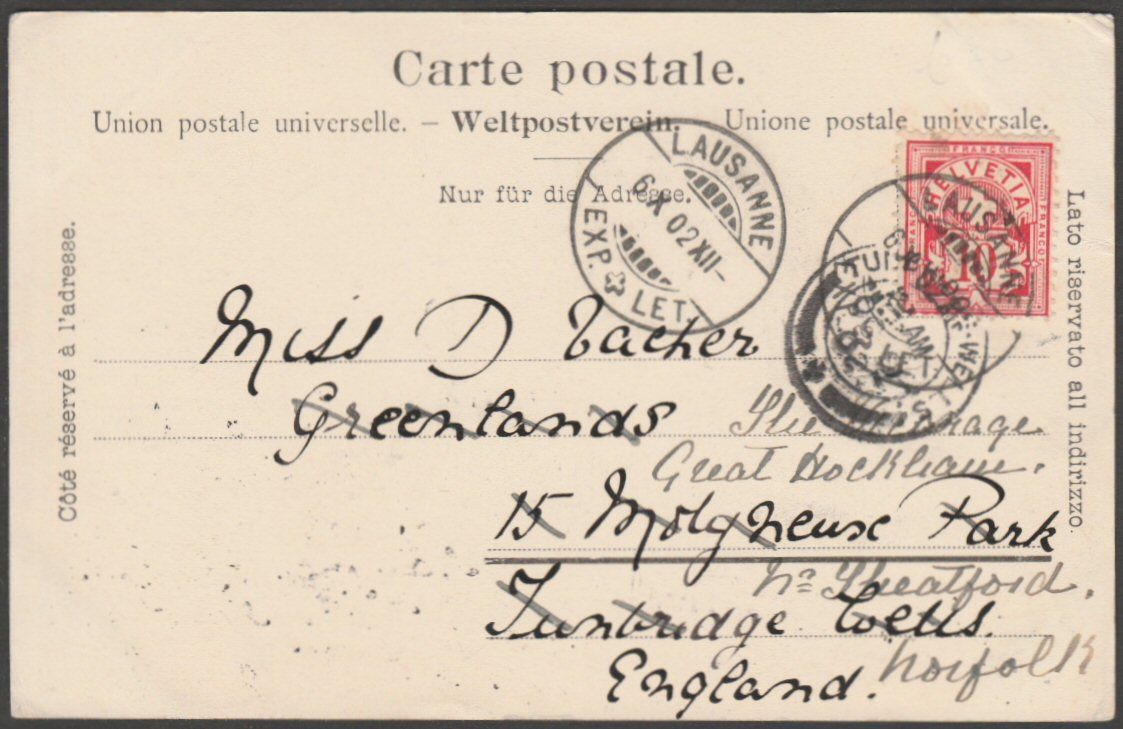 Carte postale.
Union postale universelle. – Weltpostverein. – Unione postale universale.
Nur für die Adresse.
Côté réservé à l'adresse.
Lato riservato all indirizzo.
LAUSANNE
6.X 02 XII–
EXP. LET.
FRANCO
HELVETIA
FRANCO
10
LAUSANNE
Miss D Tacher
Greenlands
The
Great Hockham.
15 Molyneux Park
Nr Theatford.
Tunbridge Wells.
Norfolk
England.